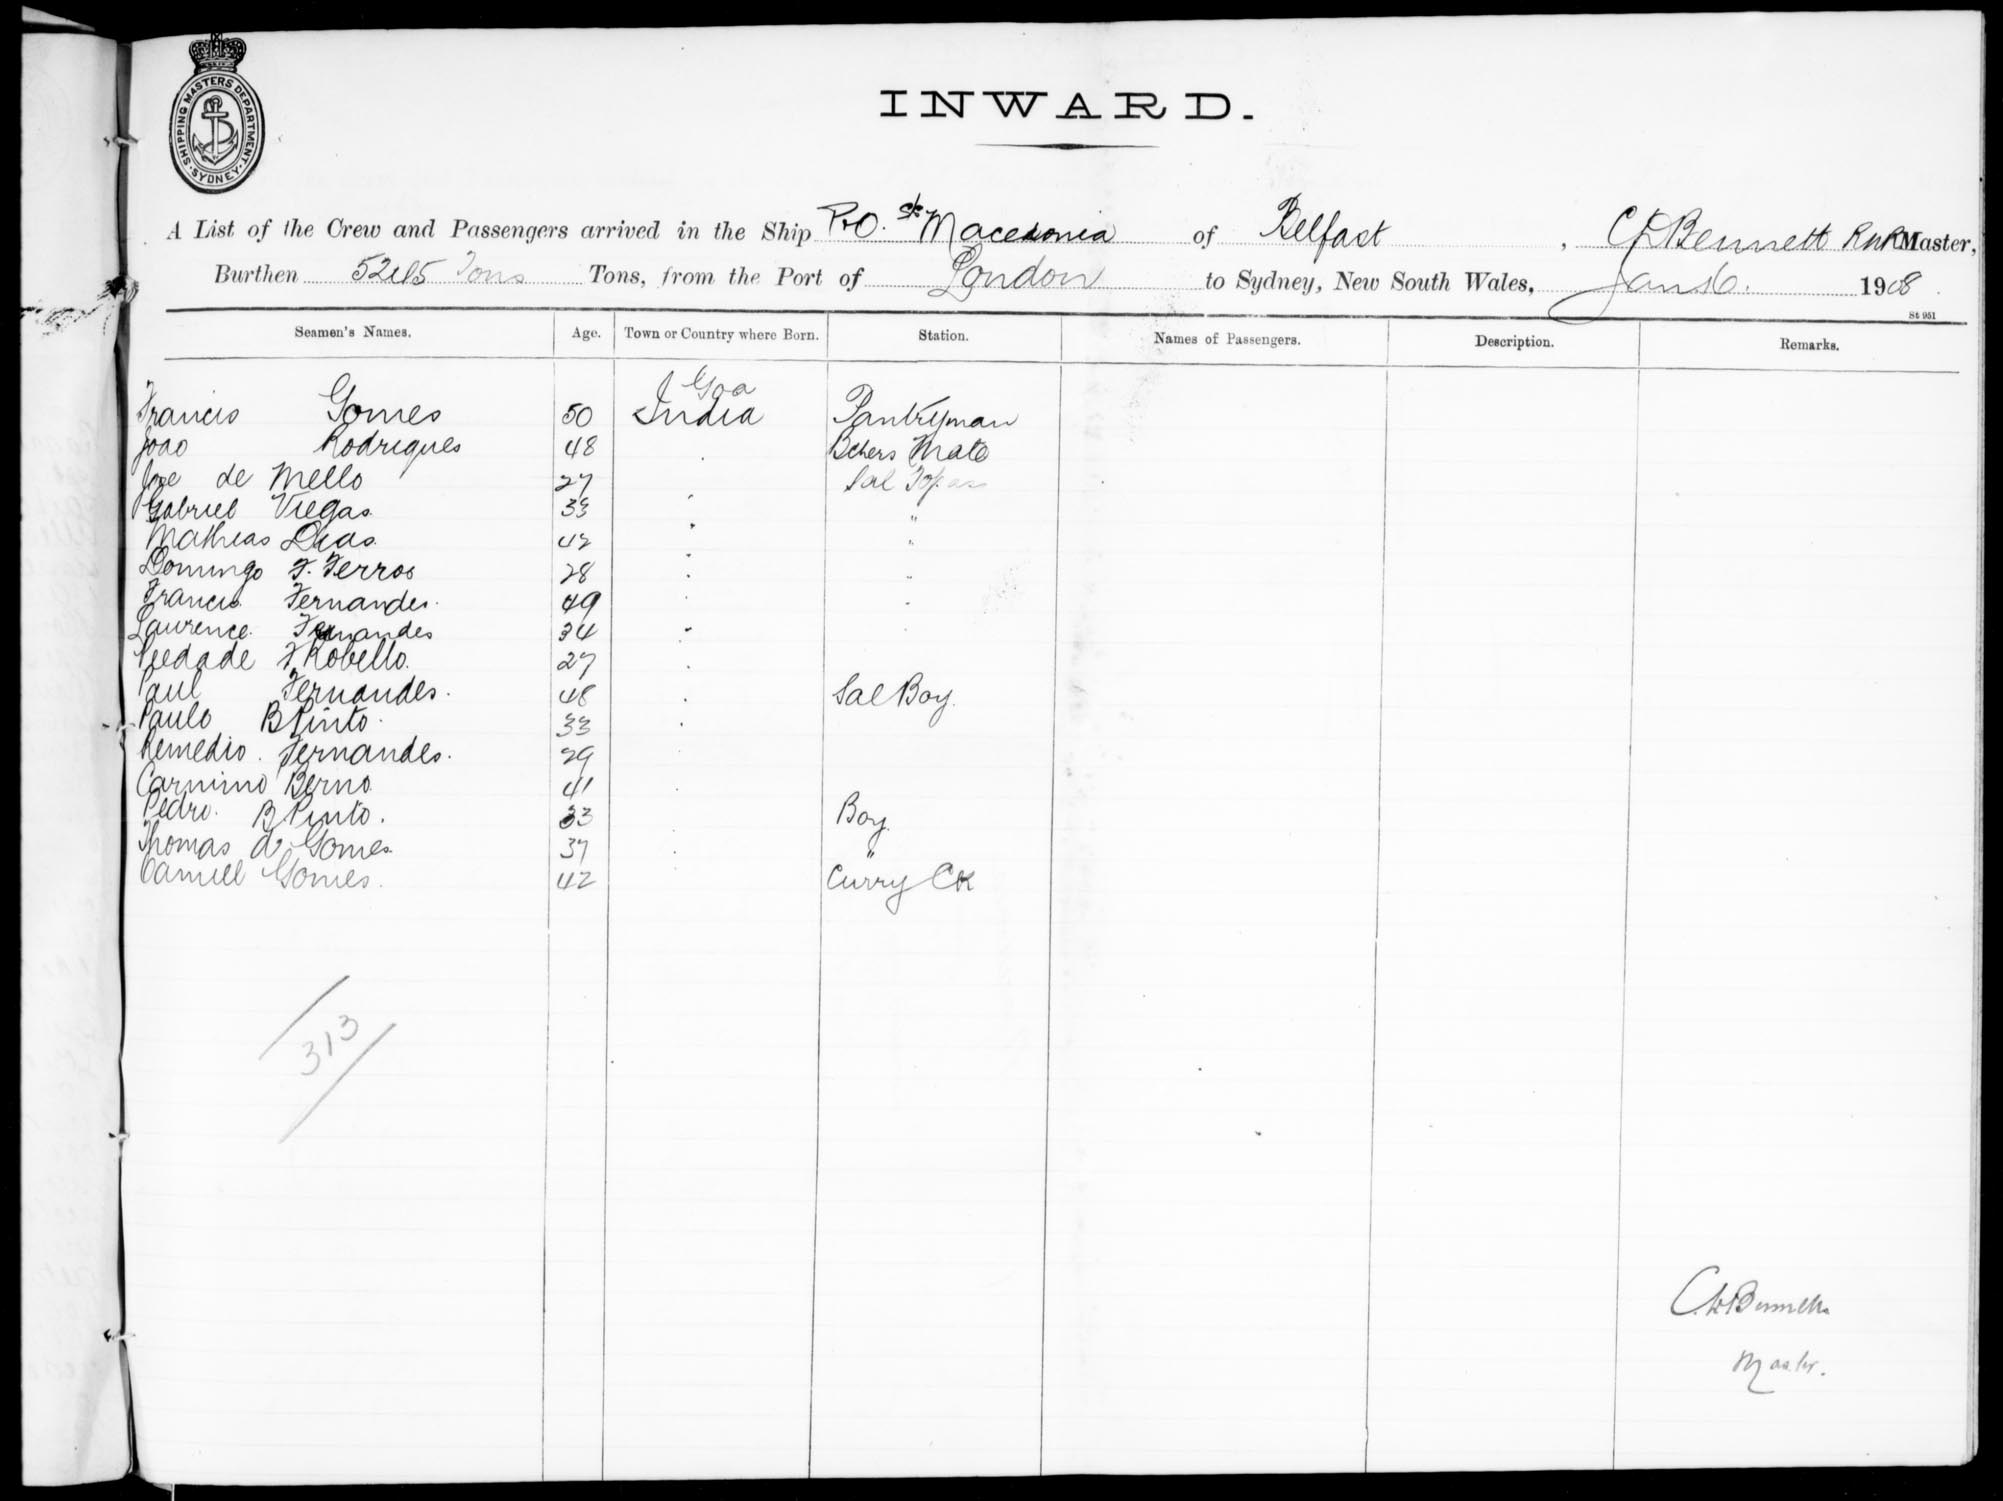 SHIPPING MASTERS DEPARTMENT · SYDNEY ·
INWARD.
A List of the Crew and Passengers arrived in the Ship P&O. SS Macedonia of Belfast, C D Bennett RNR Master,
Burthen Tons Tons, from the Port of London to Sydney, New South Wales, Jan 16. 1908
St 951
Seamen's Names. Age. Town or Country where Born. Station. Names of Passengers. Description. Remarks.
Goa
Francis Gomes 50 India Pantryman
Joao Rodrigues 48 " Bchers Mate
Jose de Mello 27 Sal Topas
Gabriel Viegas 33 " "
Mathias Dias 42 " "
Domingo F. Ferros 28 " "
Francis Fernandes. 49 " "
Laurence Fernandes 34 " "
Piedade F Robello. 27 "
Paul Fernandes. 48 " Sal Boy.
Paulo B Pinto. 33 "
Remedio Fernandes. 29
Carmino Berno 41 "
Pedro. B Pinto. 33 Boy.
Thomas d. Gomes 37 " "
Camill Gomes. 42 Curry CK
313
C D Bennett
Master.